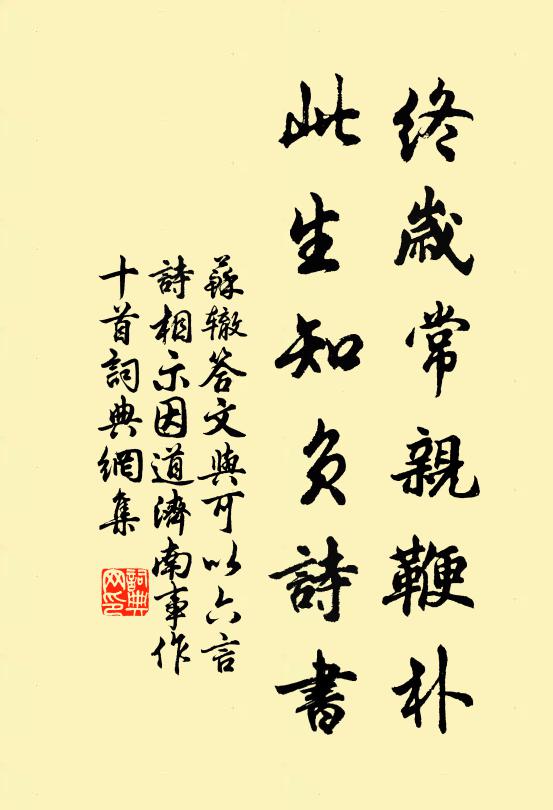 終歲常親鞭朴
此生知負詩書
蘇轍答文與可以六言
詩相示因道濟南事作
十首詞典網集
詞典
网印